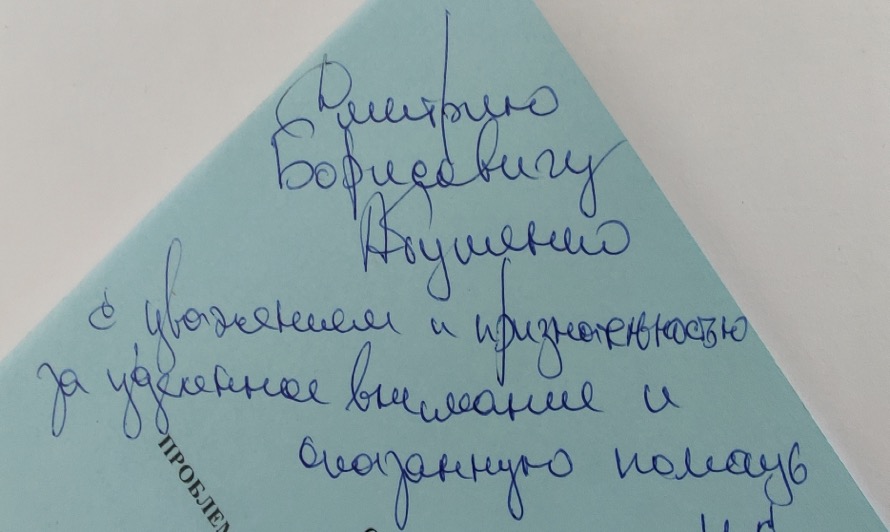 Дмитрию
Борисовичу
с уважением и признательностью
за уделённое внимание и
оказанную помощь
ПРОБЛЕМ